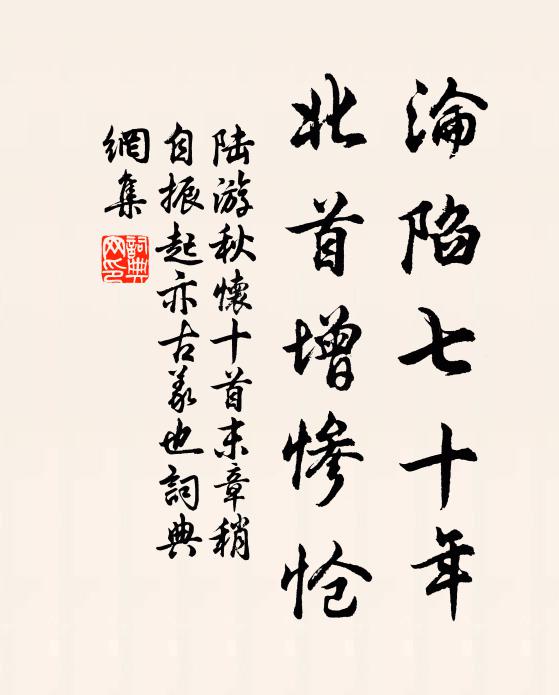 淪陷七十年
北首增慘愴
陆游秋懷十首末章稍
自振起亦古义也詞典
網集
詞典网印